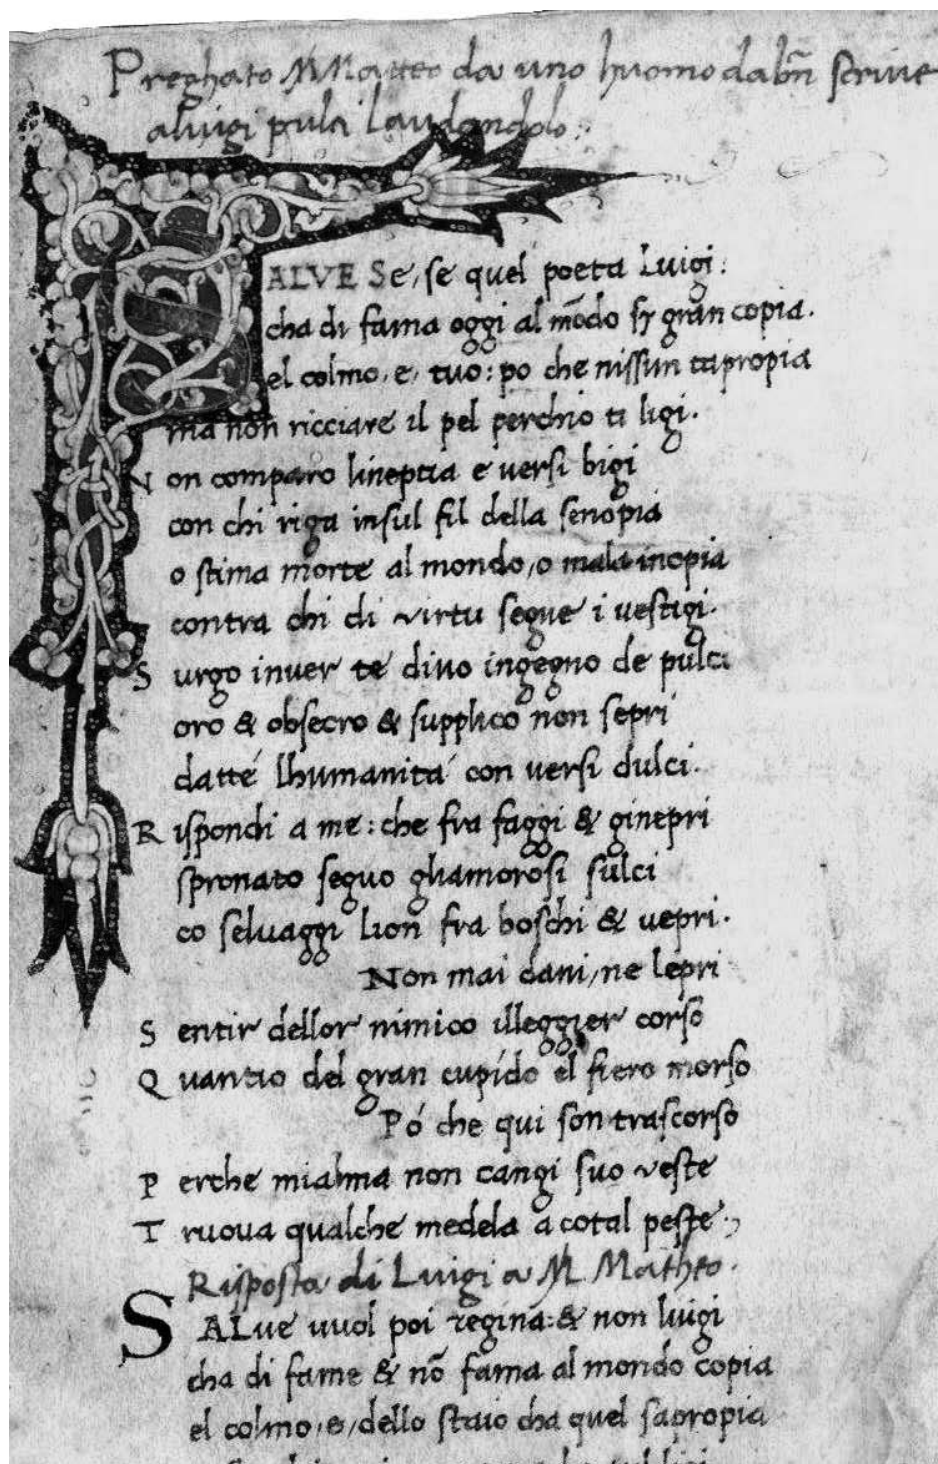 Preghato M Matteo da uno huomo dabñ scrive
aluigi pulci Laudandolo:
SALVE Se, se quel poeta Luigi:
cha di fama oggi al mōdo sy gran copia.
el colmo, e, tuo: po che nissun tapropia
ma non ricciare il pel perchio ti ligi.
Non comparo lineptia e versi bigi
con chi riga insul fil della senopia
o stima morte al mondo, o mala inopia
contra chi di virtu segue i vestigi.
Surgo inver te divo ingegno de pulci
oro & obsecro & supplico non sepri
datté lhumanitá con versi dulci.
Rispondi a me: che fra faggi & ginepri
spronato seguo ghamorosi sulci
co selvaggi lion fra boschi & vepri.
Non mai dani, ne lepri
Sentir dellor nimico illeggier corso
Quantio del gran cupido el fiero morso
Pó che qui son trascorso
Perche mialma non cangi suo veste
Truova qualche medela a cotal peste.
Risposta di Luigi a M Matheo.
SALve vuol poi regina: & non luigi
cha di fame & nō fama al mondo copia
el colmo, e, dello staio cha quel sapropia